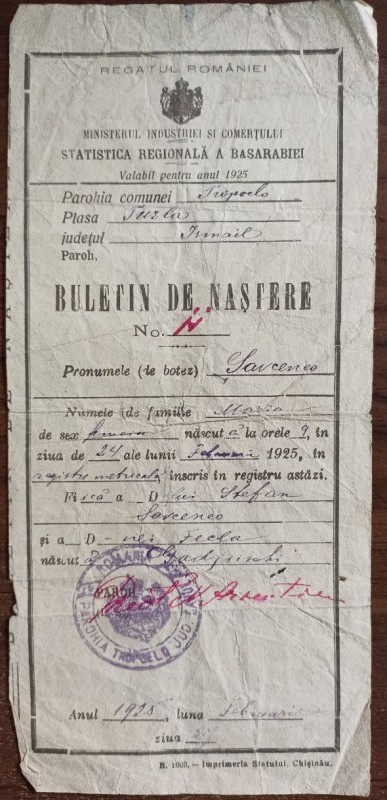 REGATUL ROMÂNIEI
MINISTERUL INDUSTRIEI ȘI COMERȚULUI
STATISTICA REGIONALĂ A BASARABIEI
Valabil pentru anul 1925
Parohia comunei Tropoclo
Plasa Tuzla
județul Ismail
Paroh.
BULETIN DE NAȘTERE
No.
Pronumele (de botez) Savcenco
Numele (de familie) Maria
de sex născut ă la orele 9, în
ziua de 24 ale lunii Februarie 1925, în
registru metricală inscris în registru astăzi.
Fiică a D-lui Stefan
Savcenco
și a D-nei Tecla
născut
PAROH
ROMÂNIA
PAROHIA TROPOCLO JUD.
Anul 1925, luna Februari
ziua
B. 1000. — Imprimeria Statului, Chișinău.